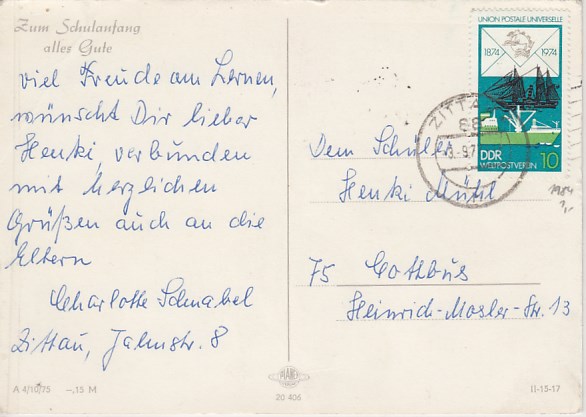 Zum Schulanfang
alles Gute
viel Freude am Lernen,
wünscht Dir lieber
Henki, verbunden
mit herzlichen
Grüßen auch an die
Eltern
Charlotte Schnabel
Zittau, Jahnstr. 8
A 4/10/75 –,15 M
PLANET
20 406
UNION POSTALE UNIVERSELLE
1874 1974
DDR 10
WELTPOSTVEREIN
ZITTAU
Dem Schüler
Henki Mühl
75 Cottbus
Heinrich-Mosler-Str. 13
1984
II-15-17